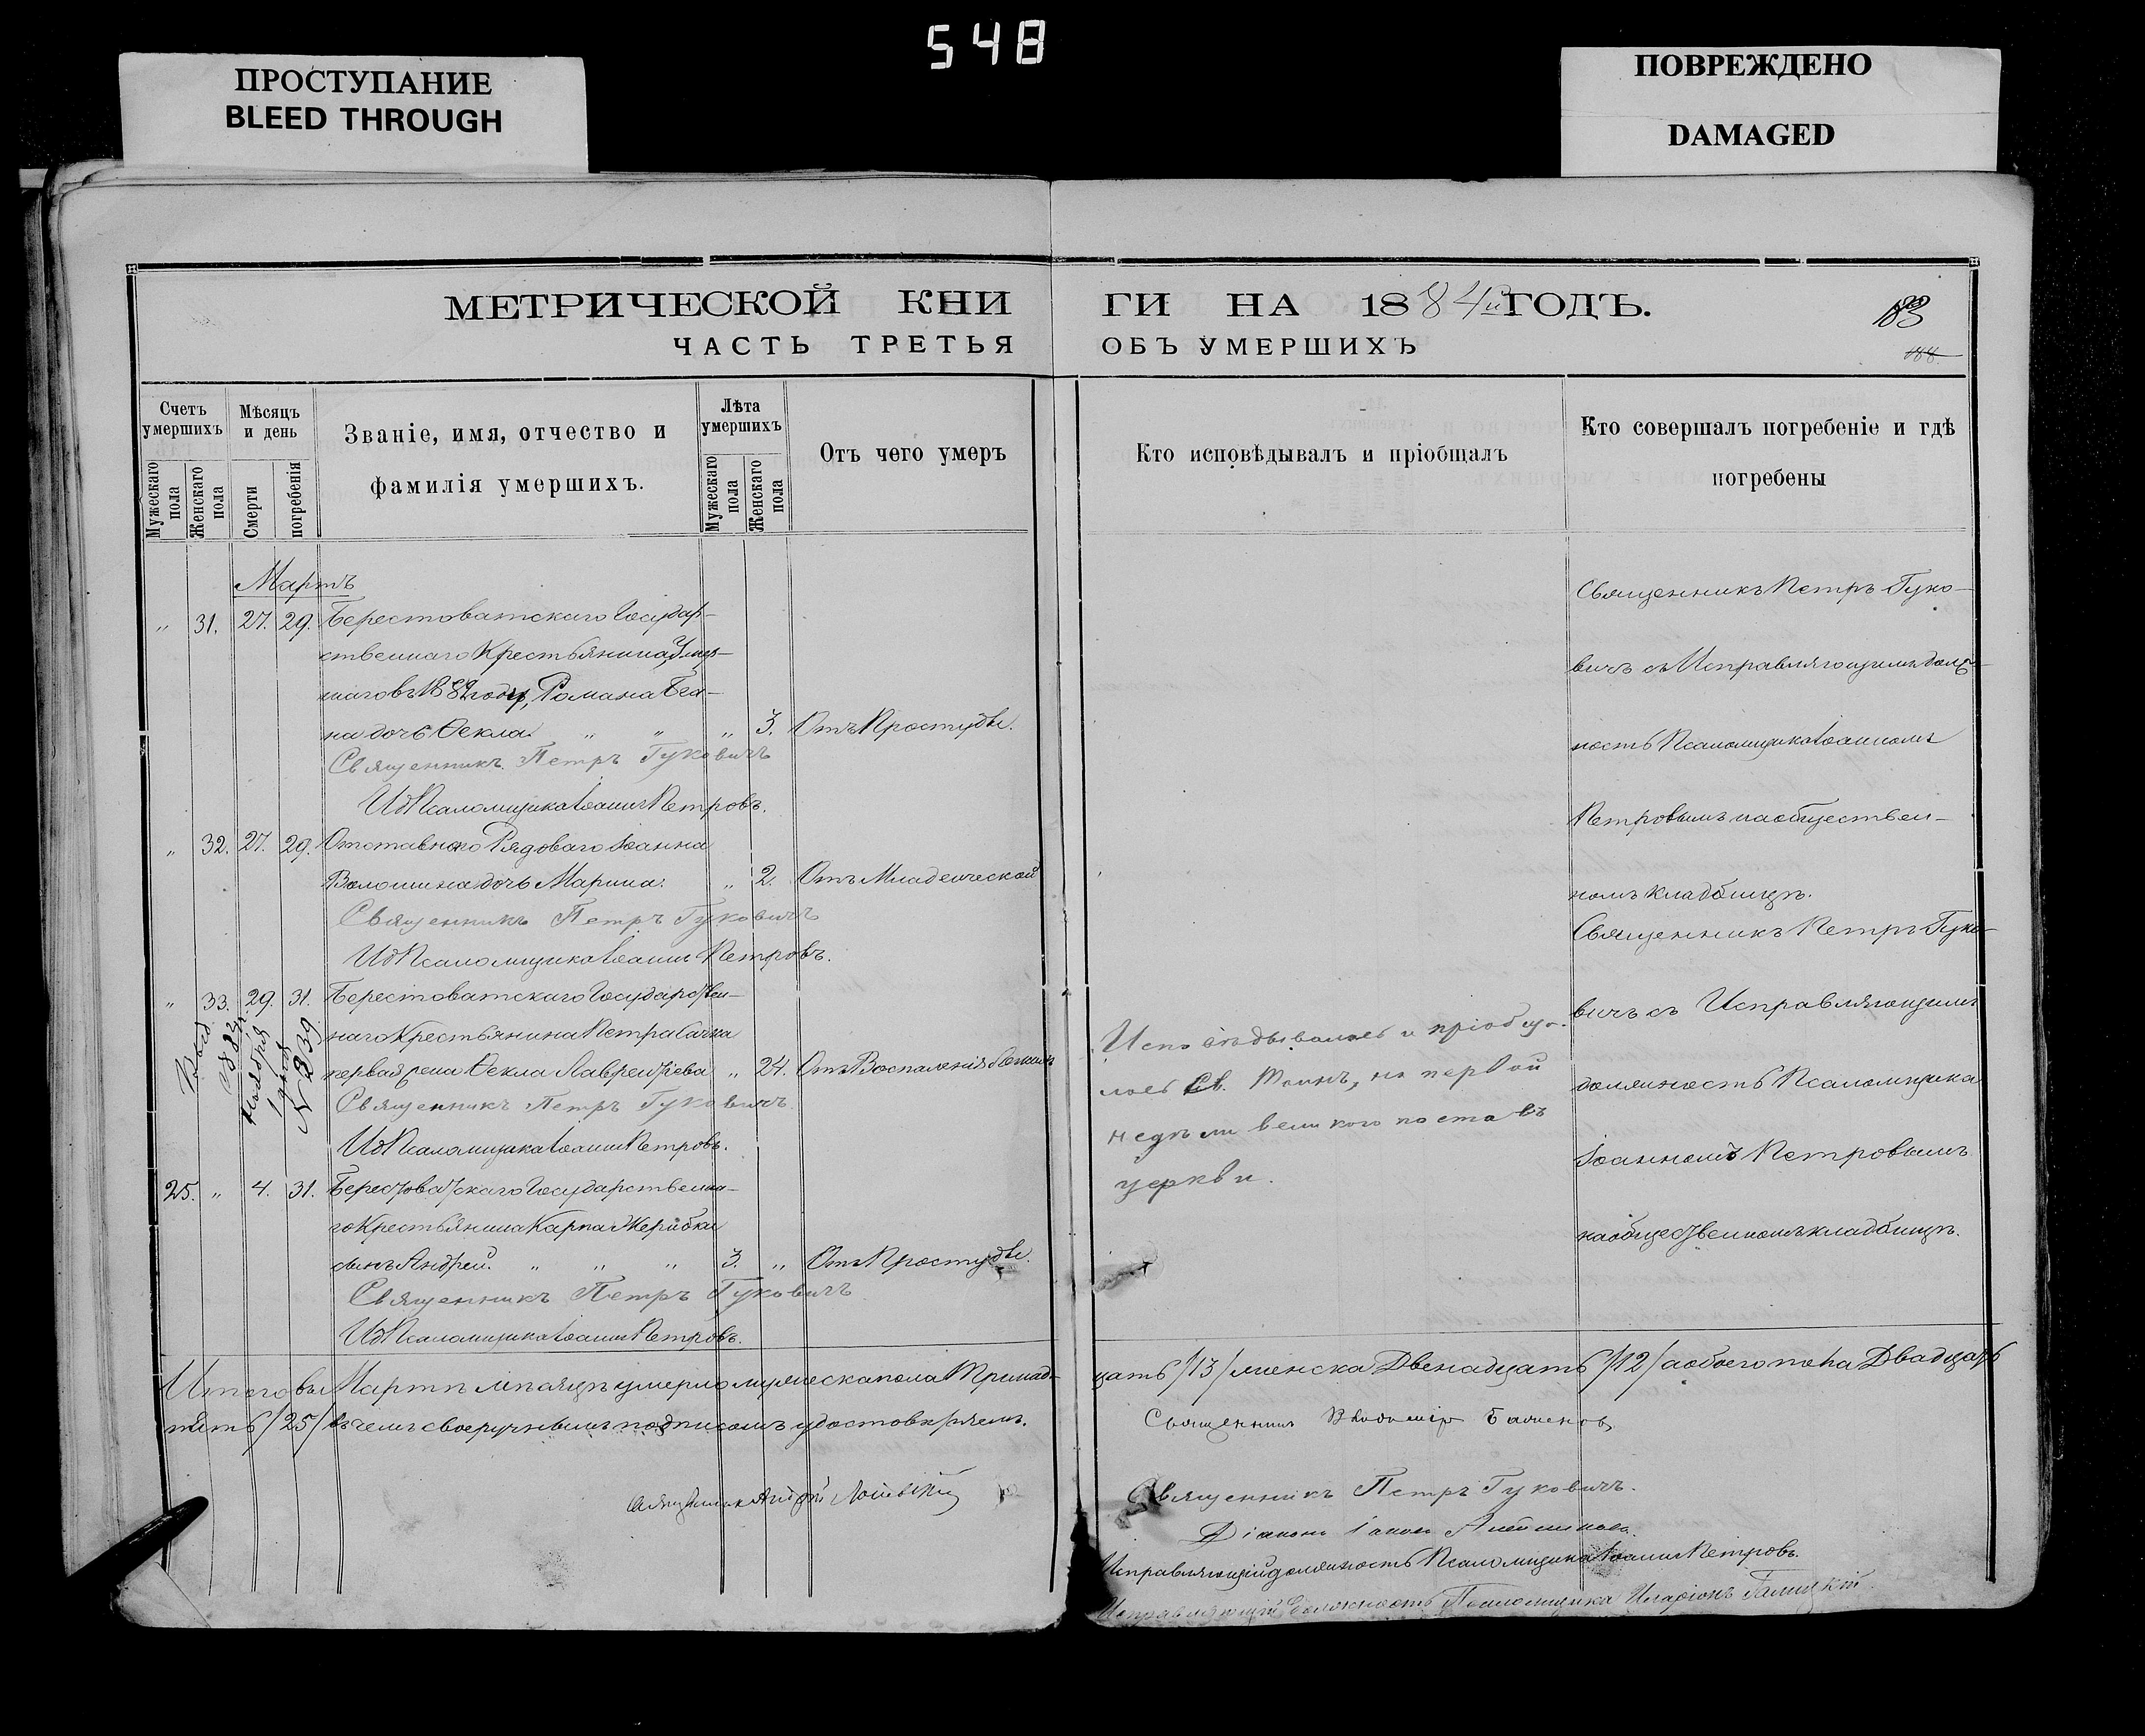 548
ПРОСТУПАНИЕ
BLEED THROUGH
ПОВРЕЖДЕНО
DAMAGED
МЕТРИЧЕСКОЙ КНИ
ГИ НА 1884й ГОДЪ.
183
188
ЧАСТЬ ТРЕТЬЯ
ОБЪ УМЕРШИХЪ
Счетъ умершихъ
Мужескаго пола
Женскаго пола
Мѣсяцъ и день
Смерти
погребенія
Званіе, имя, отчество и
фамилія умершихъ.
Лѣта умершихъ
Мужескаго пола
Женскаго пола
Отъ чего умеръ
Кто исповѣдывалъ и пріобщалъ
Кто совершалъ погребеніе и гдѣ
погребены
Мартъ
„ 31. 27. 29. Берестоватскаго Государ-
ственнаго Крестьянина Умер-
шаго въ 1882 году, Романа
на дочь Ѳекла. „ „ „ 3. Отъ Простуды.
Священникъ Петръ Гуковичъ
ИД Псаломщика Іоаннъ Петровъ.
„ 32. 27. 29. Отставного Рядоваго Іоанна
Волошина дочь Марина. „ 2. Отъ Младенческой
Священникъ Петръ Гуковичъ
ИД Псаломщика Іоаннъ Петровъ.
„ 33. 29. 31. Берестоватскаго Государствен-
наго Крестьянина Петра
первая жена Ѳекла Лаврентіева „ 24. Отъ Воспаленія
Священникъ Петръ Гуковичъ
ИД Псаломщика Іоаннъ Петровъ.
ноября
1 дня
N 239
25. „ 4. 31. Берестоватскаго Государственна-
го Крестьянина Карпа
сынъ Андрей. „ „ „ 3. „ Отъ Простуды.
Священникъ Петръ Гуковичъ
ИД Псаломщика Іоаннъ Петровъ.
Исповѣдывалась и пріобща-
лась Св. Таинъ, на первой
недѣли великого поста въ
церкви.
Священникъ Петръ Гуко-
вичъ съ Исправляющимъ долж-
ность Псаломщика Іоанномъ
Петровымъ на обществен-
номъ кладбищѣ.
Священникъ Петръ Гуко-
вичъ съ Исправляющимъ
должность Псаломщика
Іоанномъ Петровымъ
на общественномъ кладбищѣ.
Итого въ Мартѣ мѣсяцѣ умерло мужеска пола Тринад-
цать /13/ женска Двенадцать /12/ а обоего пола Двадцать
пять /25/ въ чемъ своеручнымъ подписомъ удостовѣряемъ.
Священникъ Андрей
Священникъ Владиміръ Баженов
Священникъ Петръ Гуковичъ.
Діаконъ Іаковъ
Исправляющій должность Псаломщика Іоаннъ Петровъ.
Исправляющій должность Псаломщика Иларіонъ Галицкій